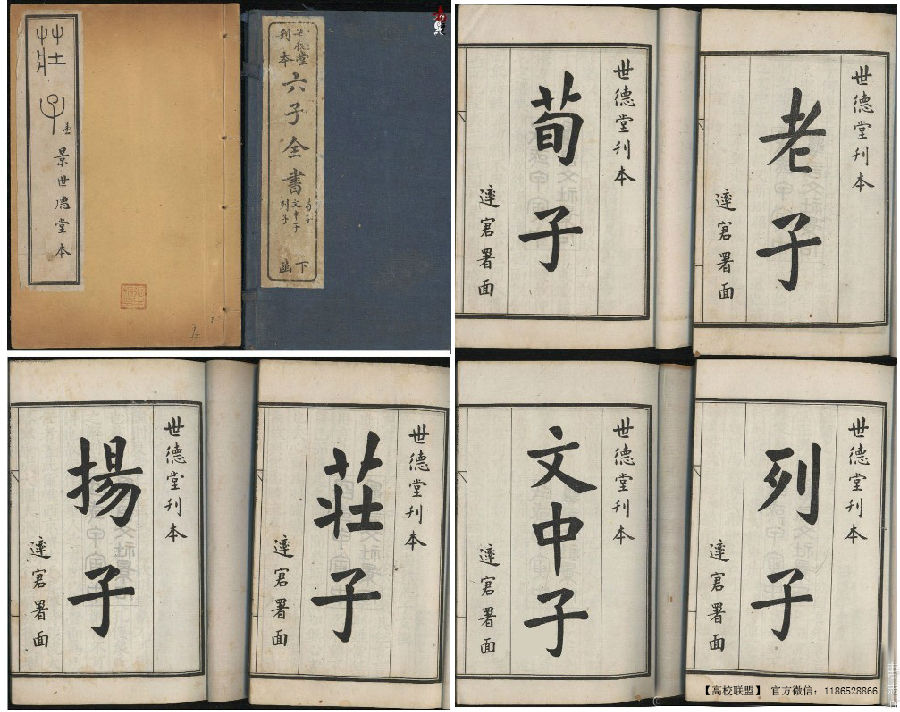 莊子
景世德堂本
世德堂
刊本
六子全書
荀子
文中子
列子
下函
世德堂刊本
荀子
達寤署面
世德堂刊本
老子
達寤署面
世德堂刊本
揚子
達寤署面
世德堂刊本
莊子
達寤署面
世德堂刊本
文中子
達寤署面
世德堂刊本
列子
達寤署面
【高校联盟】 官方微信：1186528866